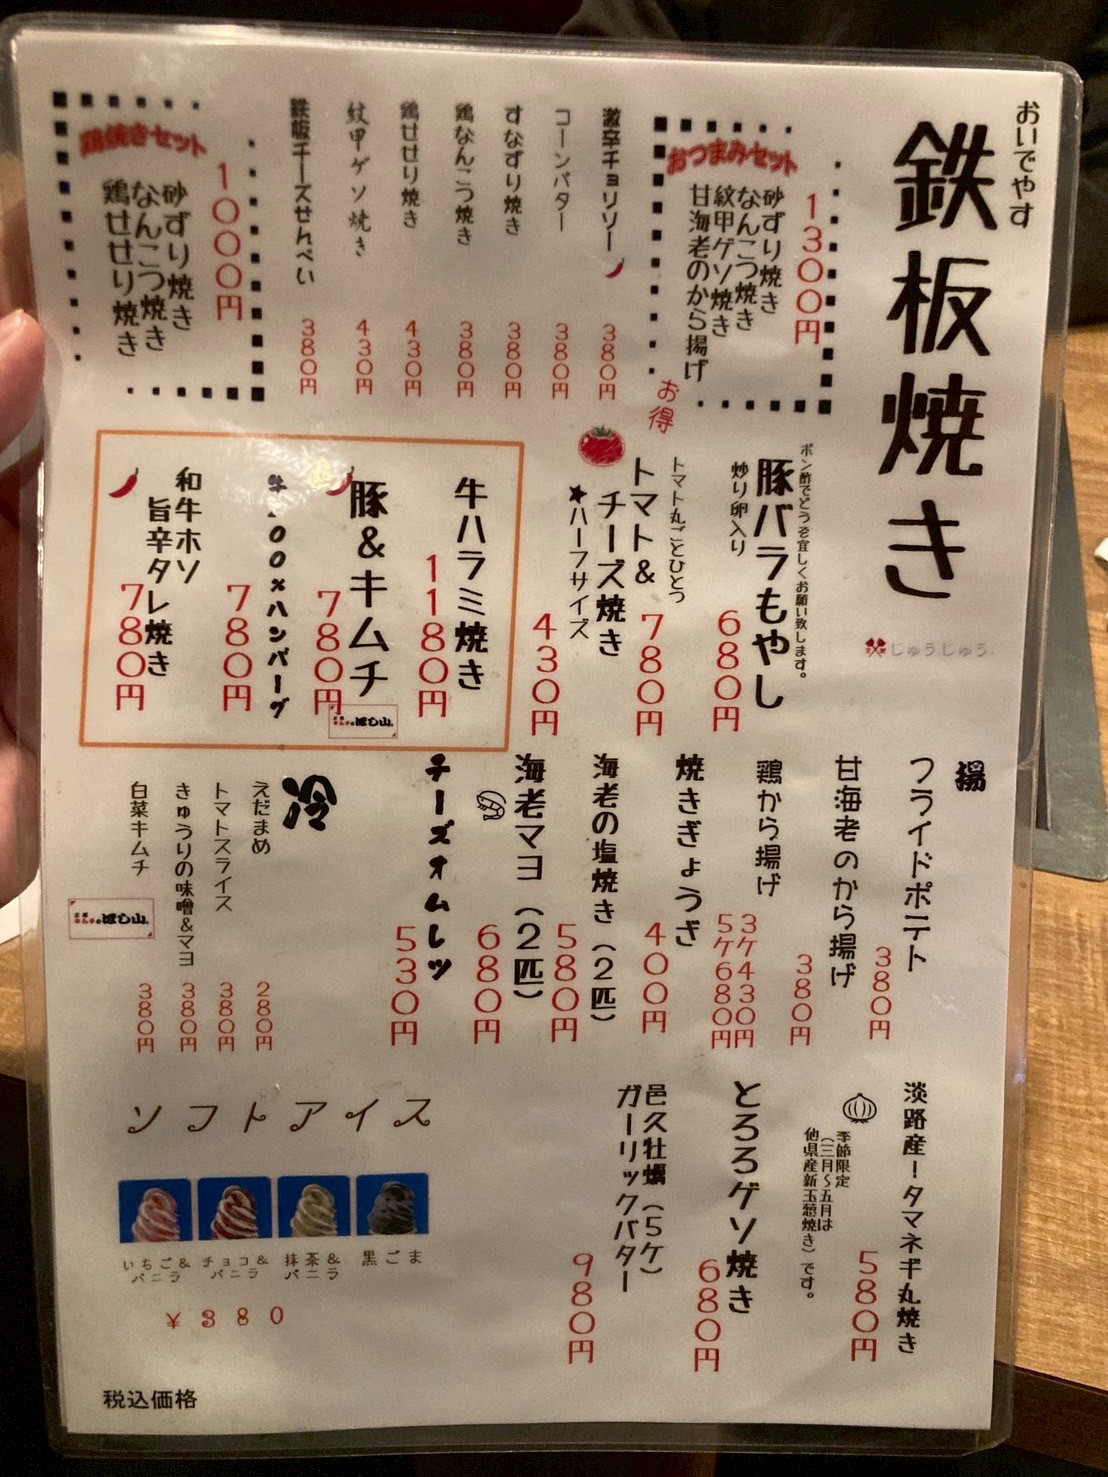 おいでやす
鉄板焼き
じゅうじゅう
おつまみセット
1300円
砂ずり焼き
なんこつ焼き
紋甲ゲソ焼き
甘海老のから揚げ
お得
激辛チョリソー
380円
コーンバター
380円
すなずり焼き
380円
鶏なんこつ焼き
380円
鶏せせり焼き
430円
紋甲ゲソ焼き
430円
鉄板チーズせんべい
380円
鶏焼きセット
1000円
砂ずり焼き
なんこつ焼き
鶏せせり焼き
ポン酢でどうぞ宜しくお願い致します。
豚バラもやし
炒り卵入り
680円
トマト丸ごとひとつ
トマト&
チーズ焼き
780円
★ハーフサイズ
430円
牛ハラミ焼き
1180円
豚&キムチ
780円
ほし山
牛100%ハンバーグ
780円
和牛ホソ
旨辛タレ焼き
780円
揚
フライドポテト
380円
甘海老のから揚げ
380円
鶏から揚げ
3ケ430円
5ケ680円
焼きぎょうざ
400円
海老の塩焼き(2匹)
580円
海老マヨ(2匹)
680円
チーズオムレツ
530円
冷
えだまめ
280円
トマトスライス
380円
きゅうりの味噌&マヨ
380円
白菜キムチ
380円
ほし山
淡路産!タマネギ丸焼き
580円
季節限定
(三月〜五月は
他県産新玉葱焼き)です。
とろろゲソ焼き
680円
邑久牡蠣(5ケ)
ガーリックバター
980円
ソフトアイス
いちご&
バニラ
チョコ&
バニラ
抹茶&
バニラ
黒ごま
¥380
税込価格